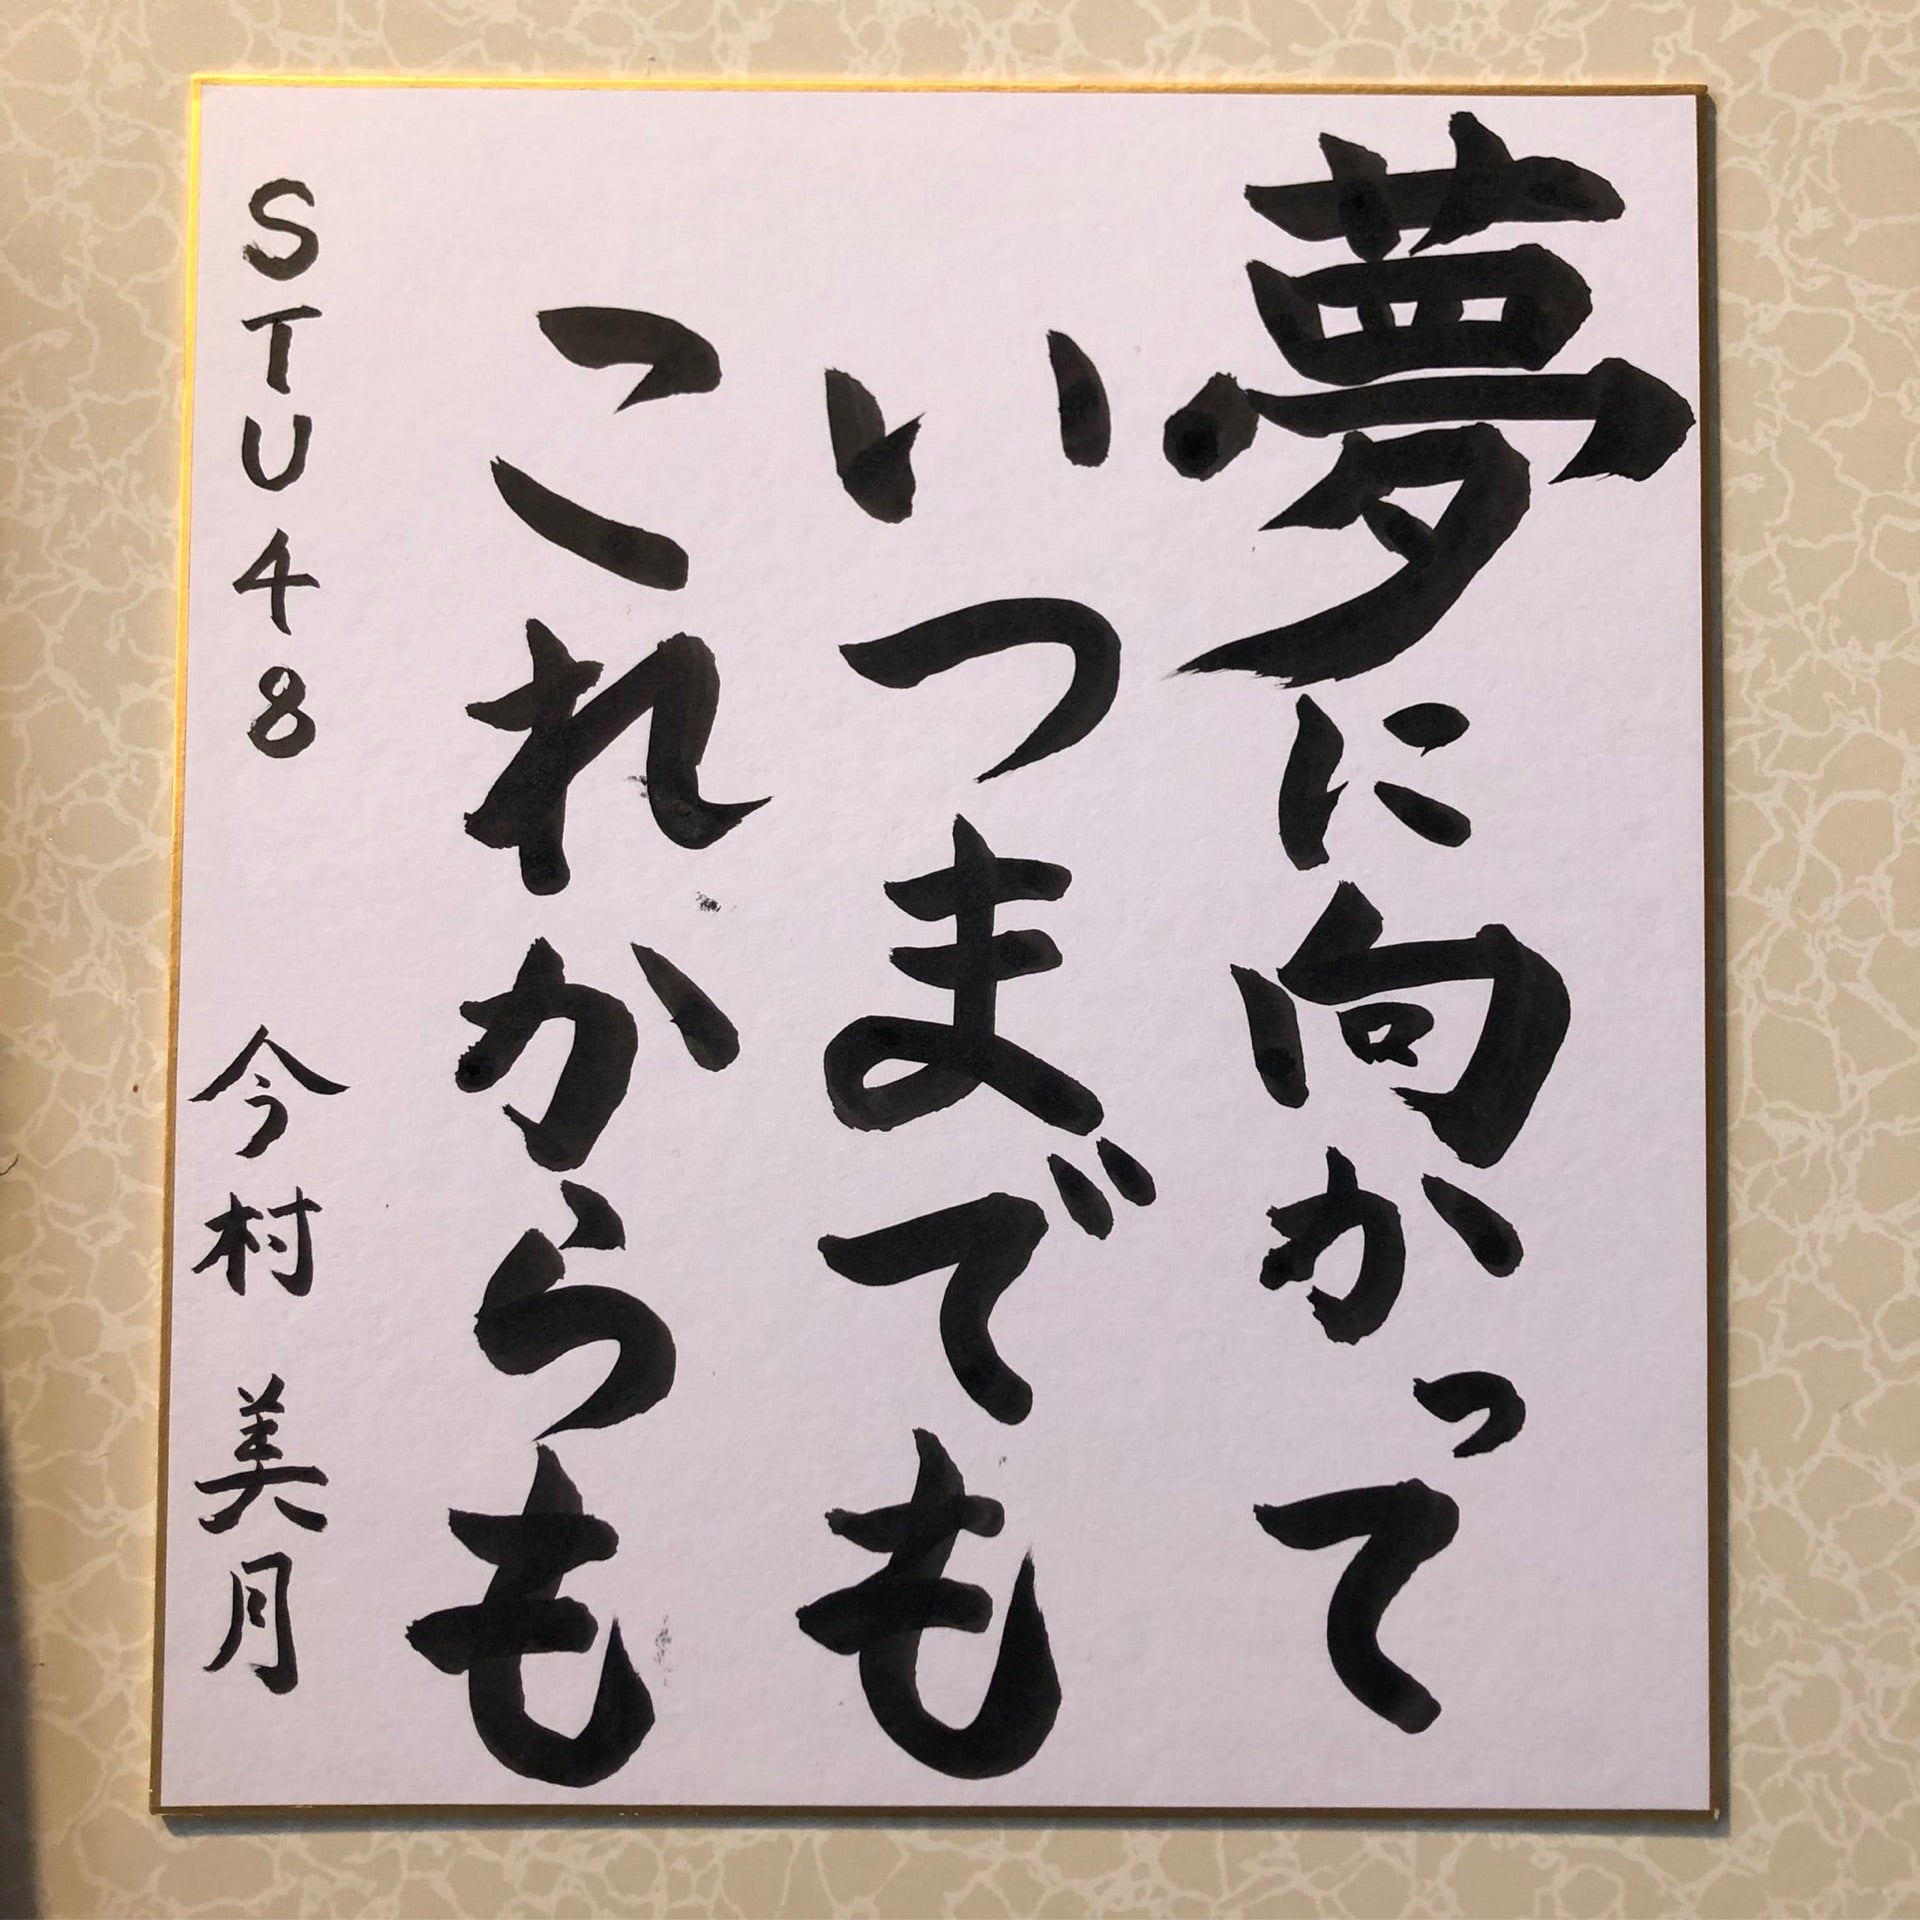 夢に向かって
いつまでも
これからも
STU48 今村美月